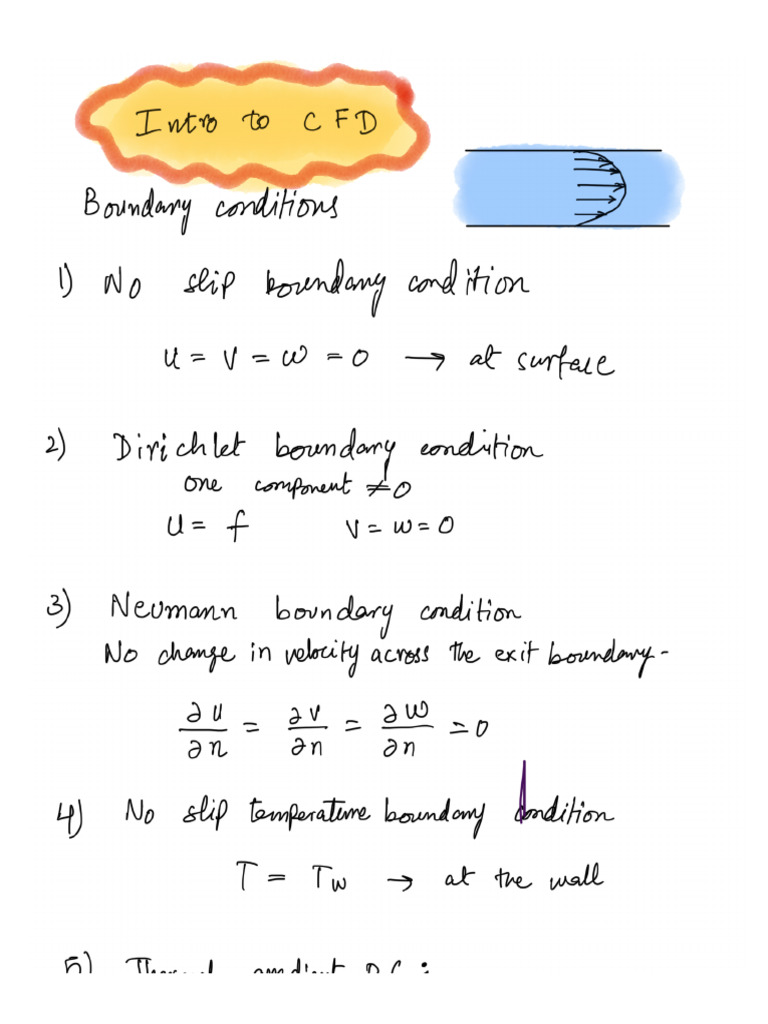 Intro to CFD
Boundary conditions
1) No slip boundary condition
u = v = w = 0 → at surface
2) Dirichlet boundary condition
one component ≠ 0
u = f v = w = 0
3) Neumann boundary condition
No change in velocity across the exit boundary-
∂u/∂n = ∂v/∂n = ∂w/∂n = 0
4) No slip temperature boundary condition
T = Tw → at the wall
5)